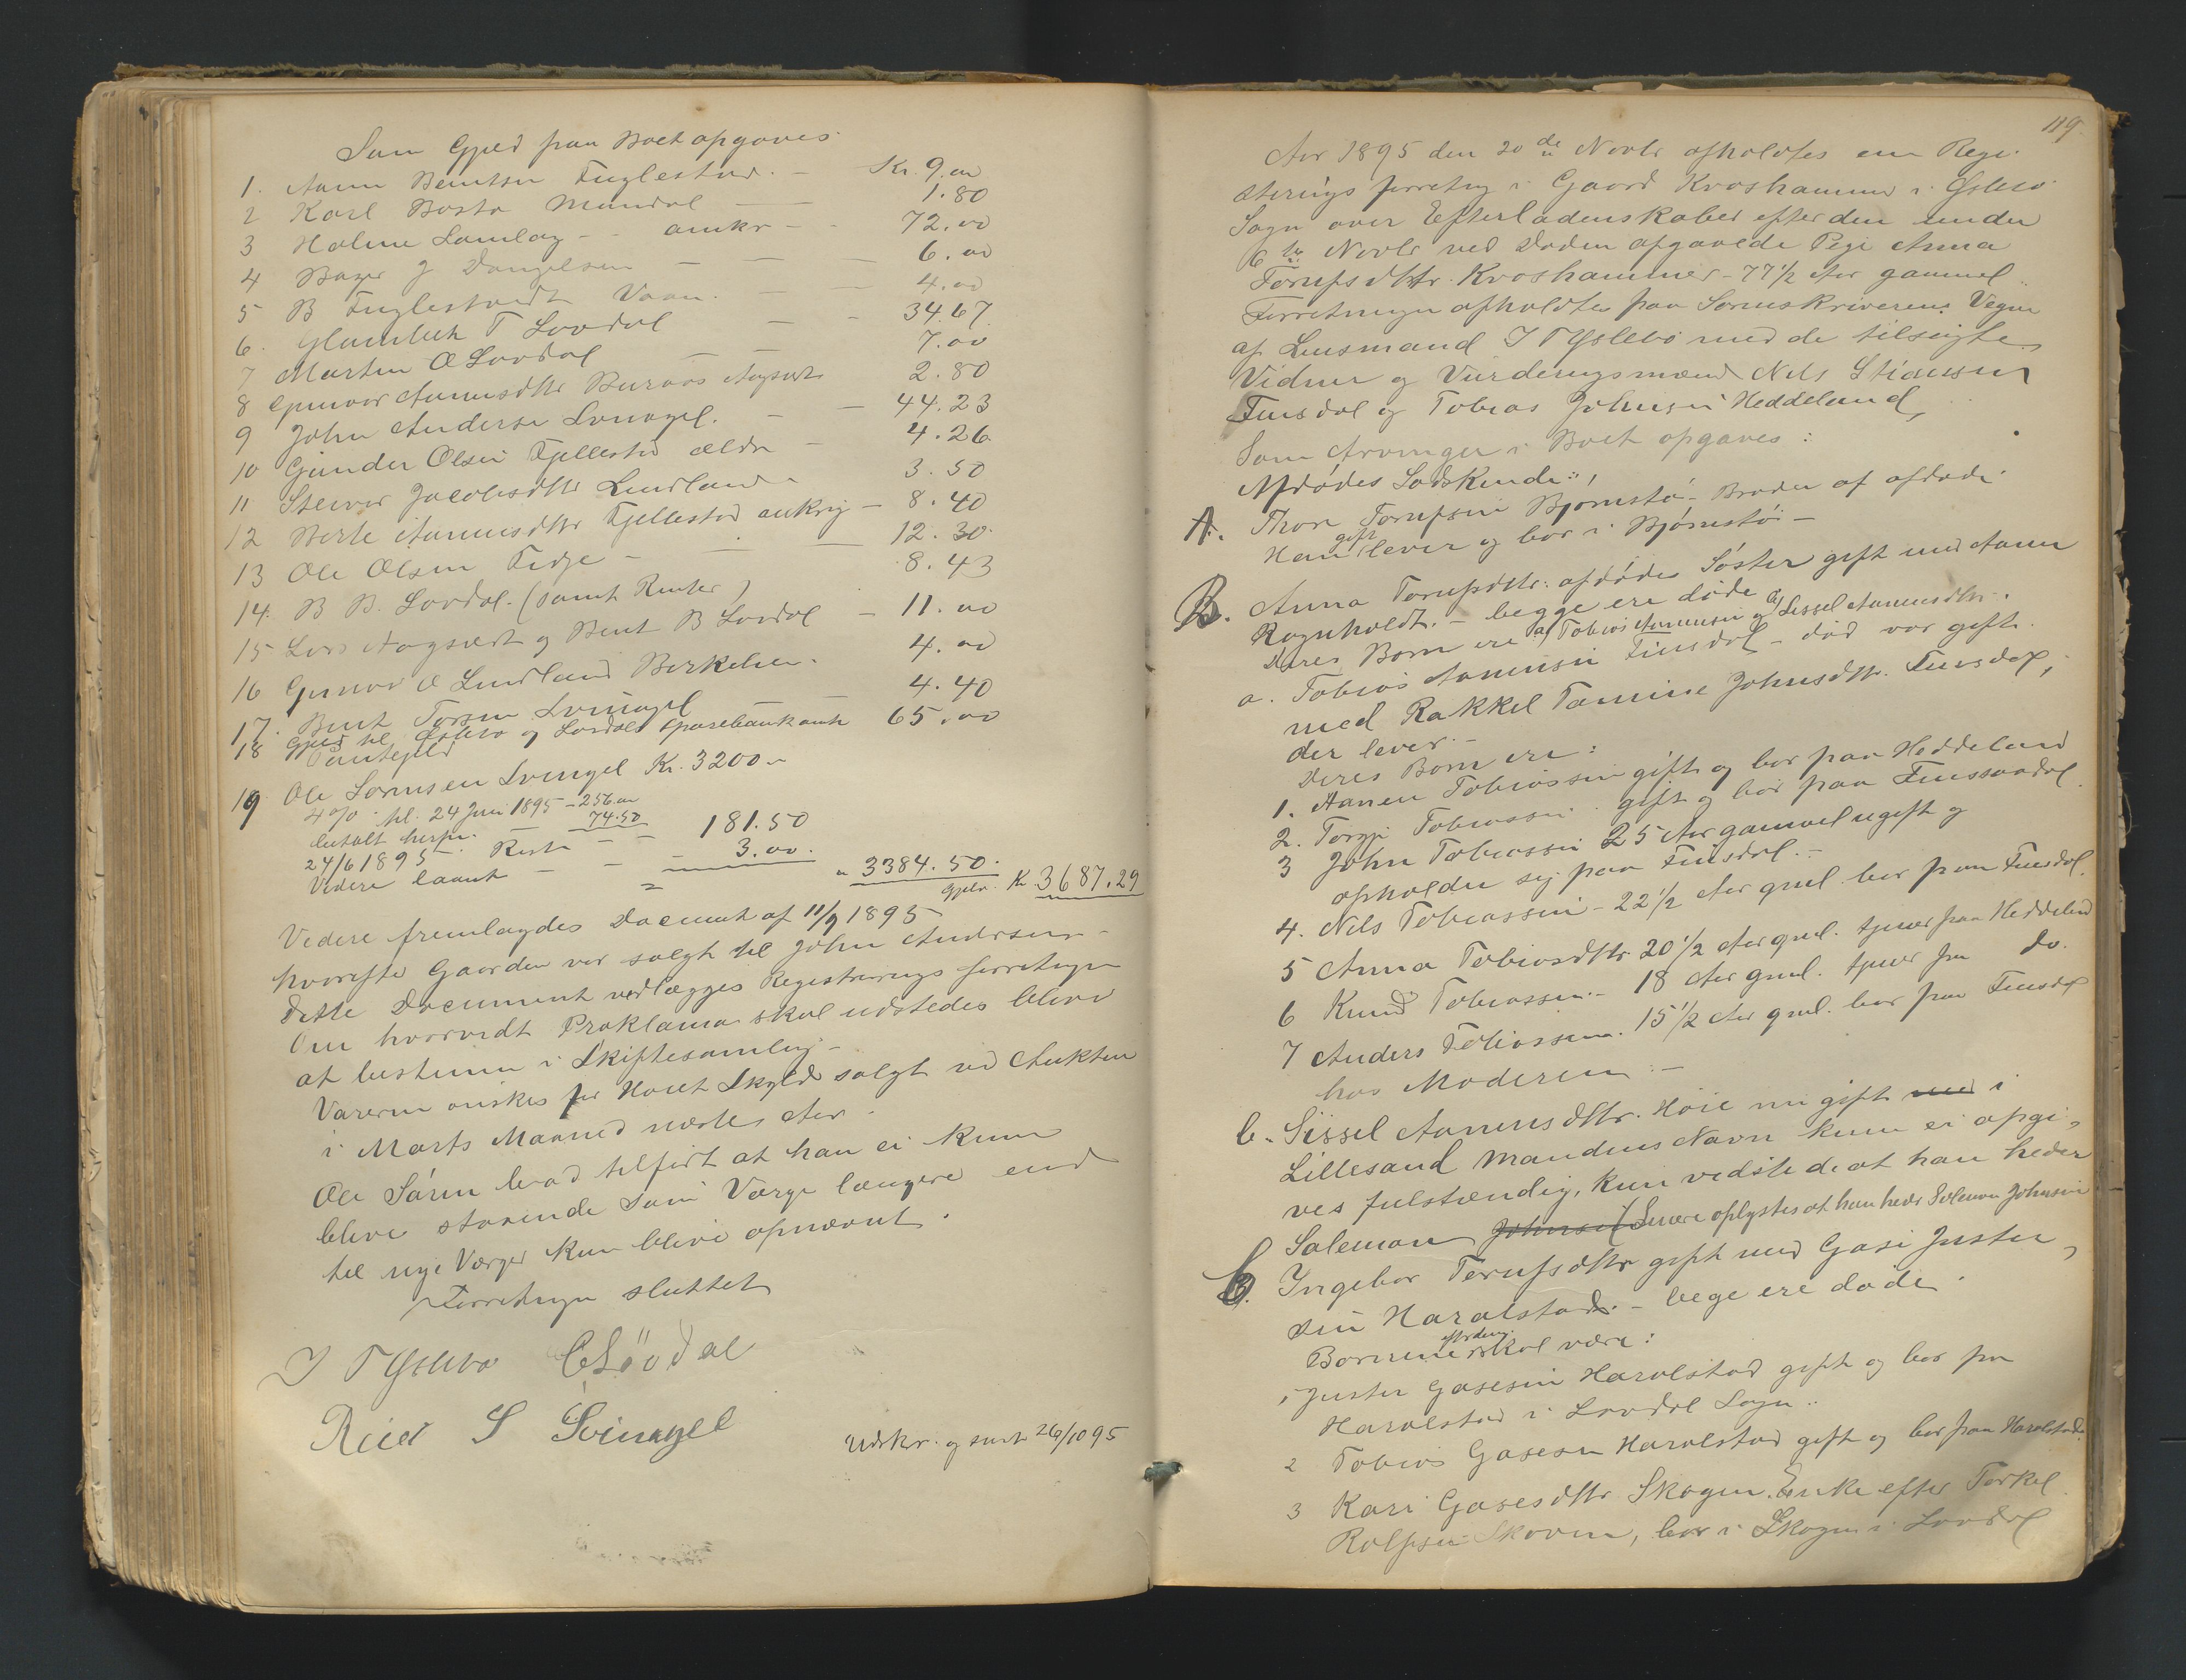 Som Gjeld paa Boet opgaves
1. Aanen Berntsen Fuglestvd. - Kr. 9.00
2 Karl Bosto Mandal - 1.80
3 Holme Samlag - - omkr - 72.00
4 Bager J Danielsen - - - 6.00
5 B Fuglestvedt Vaan. - - 4.00
6. T Lovdal - - 34.67
7 Marten O Lovdal - - 7.00
8 Gunvor Aanensdttr Aagsedt 2.80
9 John Andersen Svinagel. - - 44.23
10 Gunder Olsen Fjellestd ældre - 4.26
11 Siever Jacobsdttr Lindland - 3.50
12 Berte Aanensdttr Fjellestad omkring - 8.40
13 Ole Olsen Tedje - - - 12.30.
14. B B. Lovdal. (samt Renter) 8.43
15 Lars Aagsedt og Bent B Lovdal - 11.00
16 Gunvor O Lindland Birkelien. 4.00
17. Bent Torsen Svinagel - 4.40
18 Gjeld til Øslebø og Lovdals Sparebank omtr 65.00
Pantegjeld
19 Ole Sørensen Svinagel Kr. 3200 -
4% til 24 Juni 1895 - 256.00
betalt herpaa - 74.50
24/6 1895 Rest - - 181.50
Videre laant - - - 3.00.
= " 3384.50.
Gjeld. Kr 3687.29
Videre fremlagdes Document af 11/9 1895
hvorefter Gaarden var solgt til John Andersen -
dette Document vedlægges Registrerings forretningen
Om hvorvidt Proklama skal udstedes bliver
at bestemme i Skiftesamling -
Varerne ønskes for Høiet Skyld solgt ved Auktion
i Marts Maaned næste Aar.
Ole Søren bad tilført at han ei kunne
blive staaende som Værge længere end
til nye Værger kan blive opnævnt.
Forretningen sluttet
I T Øslebø O Lövdal
Reier S Svinagel
Udskr. og sendt 26/10 95
119.
Aar 1895 den 20de Novbr afholdtes en Regi-
sterings forretng i Gaard Kroshammer i Øslebø
Sogn over Efterladenskaber efter den under
6te Novbr ved Døden afgaaede Pige Anna
Torufsdttr. Kroshammer - 77 1/2 Aar gammel.
Forretningen afholdtes paa Sorenskriverens Vegne
af Lensmand I T Øslebø med de tilsigte
Vidner og Vurderingsmænd Nils Stiansen
Finsdal og Tobias Johnsen Heddeland,
Som Arvinger i Boet opgaves:
Afdødes Sødskende:,
A. Thore Torufsen Bjørnstø - Broder af afdøde.
Han gift lever og bor i Bjørnstøi -
B. Anna Torufsdttr: afdødes Søster gift med Aanen
Rognholdt. - begge ere døde
Deres Børn ere a) Tobias Aanensen og b) Sissel Aanensdttr.
a. Tobias Aanensen Finsdal - død var gift.
med Rakkel Tomine Johnsdttr. Finsdal,
der lever. -
Deres Børn ere:
1. Aanen Tobiassen gift og bor paa Heddeland
2. Torgje Tobiassen gift og bor paa Finsaadal.
3 John Tobiassen 25 Aar gammel ugift og
opholder sig paa Finsdal. -
4. Nils Tobiassen - 22 1/2 Aar gml. bor paa Finsdal.
5 Anna Tobiasdttr 20 1/2 Aar gml. tjener paa Heddeland
6 Knud Tobiassen. - 18 Aar gml. tjener paa do.
7 Anders Tobiassen. 15 1/2 Aar gml. bor paa Finsdal
hos Moderen: -
b. Sissel Aanensdttr. Høie nu gift med i
Lillesand Mandens Navn kunne ei opgi-
ves fulstændig, kun vedste de at han heder
Saleman Johnsen (Senere oplystes at han heder Soleman Johnsen
C. Ingebor Torufsdttr gift med Gasi Juster
sen Haralstad. - bege ere døde.
Børnene efter dem skal være:
1 Juster Gasesen Haralstad gift og bor paa
Haralstad i Lovdal Sogn..
2 Tobias Gasesen Haralstad gift og bor paa Haralstad.
3 Kari Gasesdttr Skogen. Enke efter Torkel
Rolfsen Skoven, bor i Skogen i Lovdal